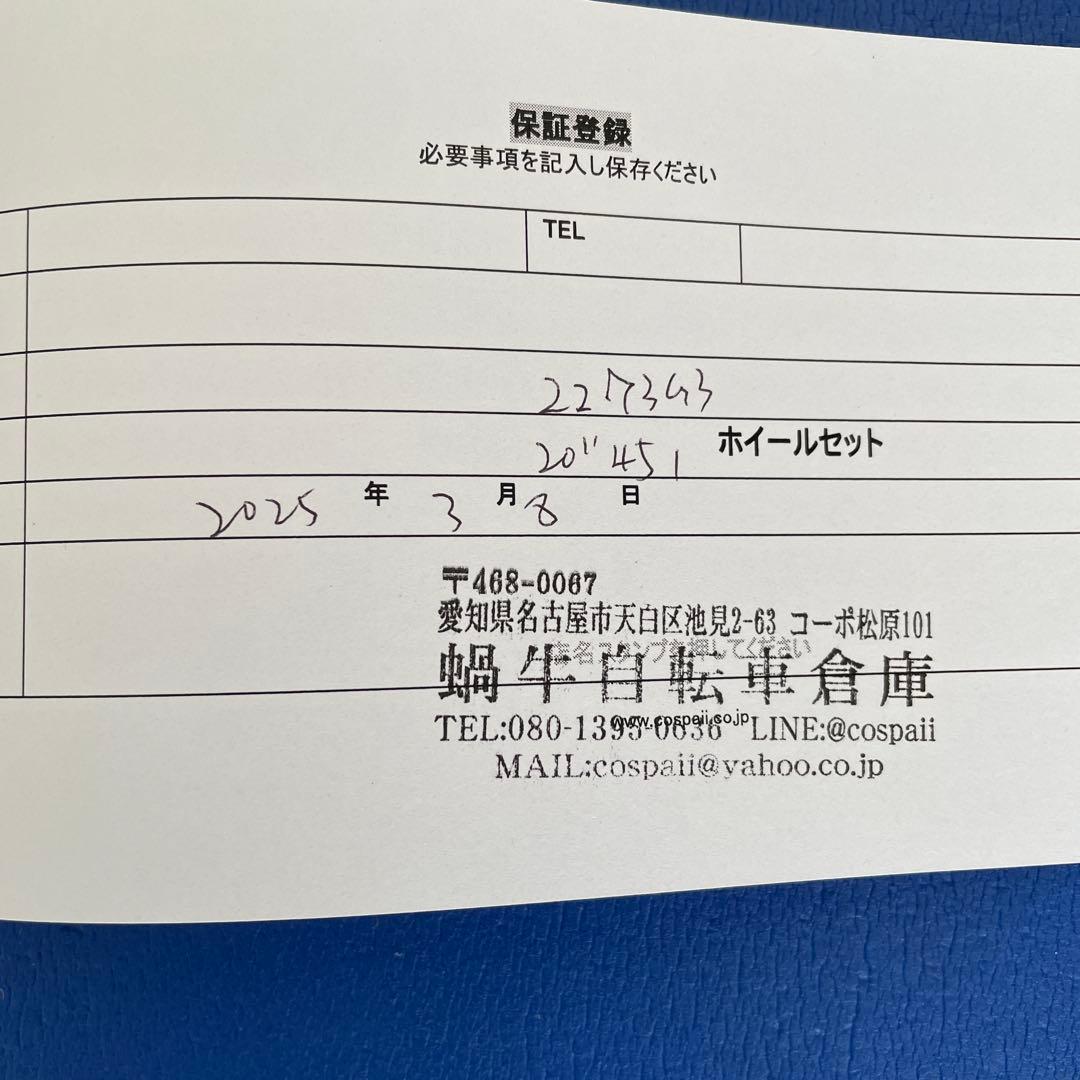 保証登録
必要事項を記入し保存ください
TEL
20"451 ホイールセット
2025 年 3 月 8 日
〒468-0067
愛知県名古屋市天白区池見2-63 コーポ松原101
店名スタンプを押してください
蝸牛自転車倉庫
www.cospaii.co.jp
TEL:080-1395-0636 LINE:@cospaii
MAIL:cospaii@yahoo.co.jp